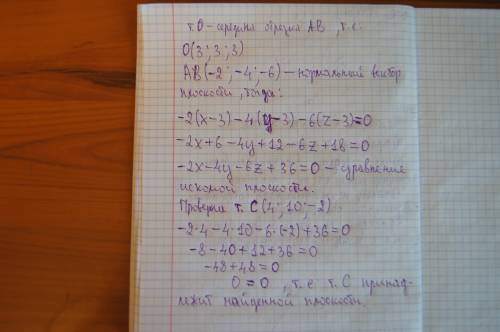 т. О - середина отрезка АВ, т.е.
О(3; 3; 3)
АВ(-2; -4; -6) - нормальный вектор
плоскости, тогда:
-2(x-3)-4(y-3)-6(z-3)=0
-2x+6-4y+12-6z+18=0
-2x-4y-6z+36=0 - уравнение
искомой плоскости.
Проверка т. С(4; 10; -2)
-2·4-4·10-6·(-2)+36=0
-8-40+12+36=0
-48+48=0
0=0, т.е. т. С принад-
лежит найденной плоскости.